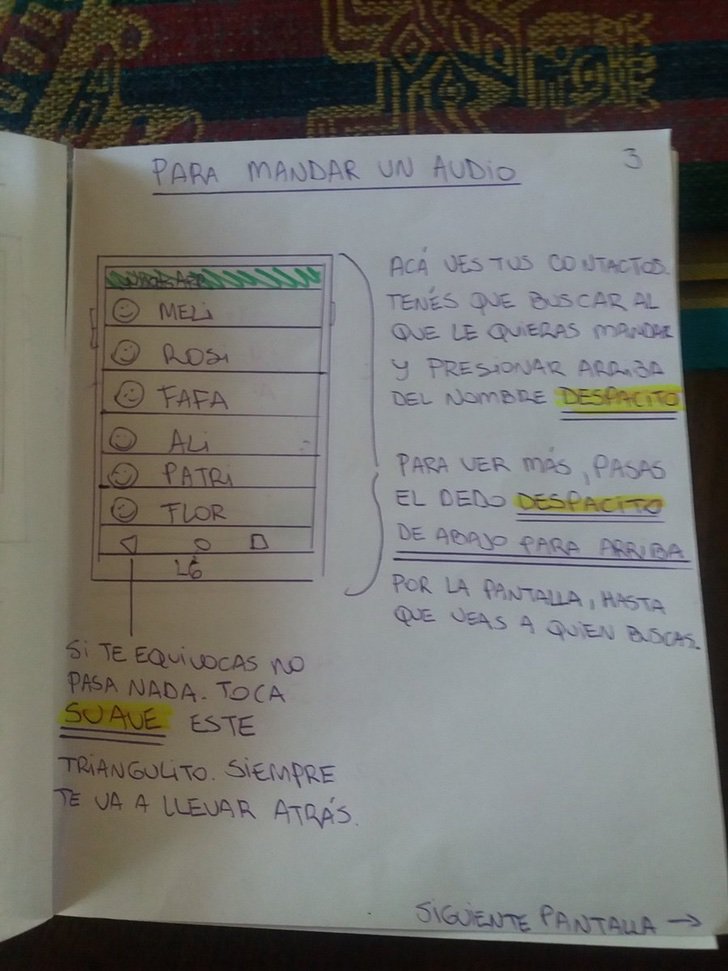 PARA MANDAR UN AUDIO
3
WHATSAPP
MELI
ROSI
FAFA
ALI
PATRI
FLOR
LG
ACÁ VES TUS CONTACTOS.
TENÉS QUE BUSCAR AL
QUE LE QUIERAS MANDAR
Y PRESIONAR ARRIBA
DEL NOMBRE DESPACITO
PARA VER MÁS, PASAS
EL DEDO DESPACITO
DE ABAJO PARA ARRIBA
POR LA PANTALLA, HASTA
QUE VEAS A QUIEN BUSCAS.
SI TE EQUIVOCAS NO
PASA NADA. TOCA
SUAVE ESTE
TRIANGULITO. SIEMPRE
TE VA A LLEVAR ATRÁS.
SIGUIENTE PANTALLA →